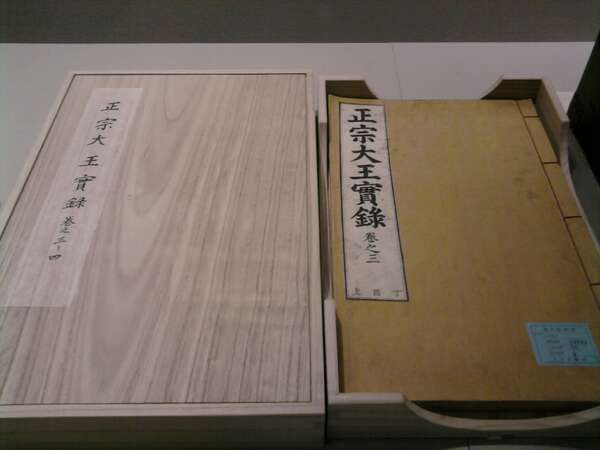 正宗大王實錄 卷之三-四
正宗大王實錄 卷之三